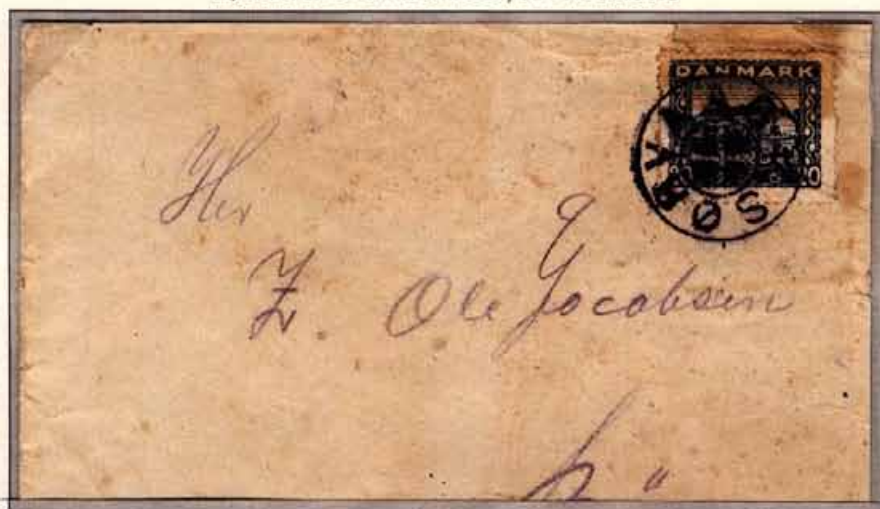 DANMARK
0
SØRV
Her
Z. Ole Jacobsen